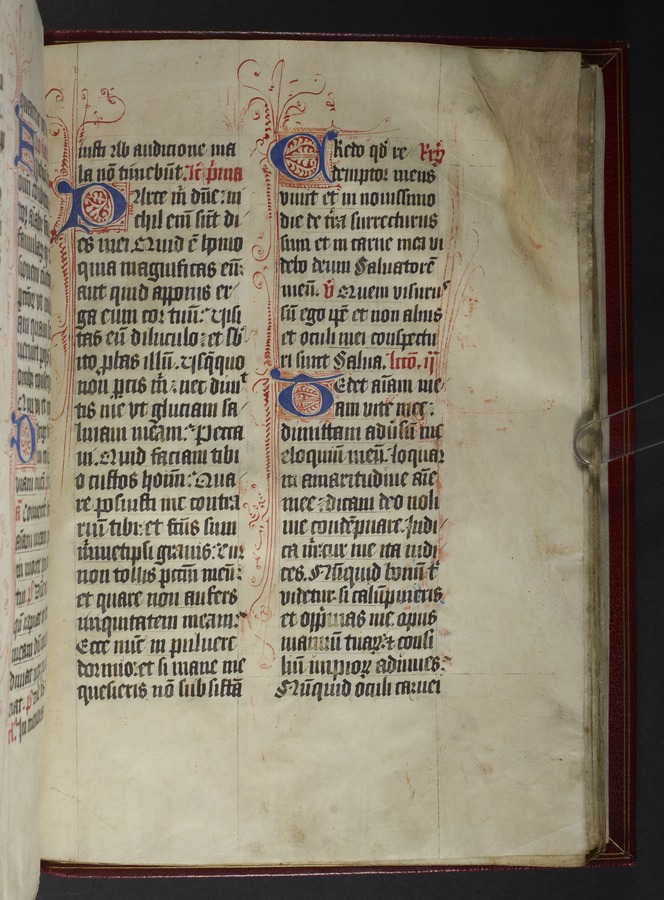 iusti Ab auditione ma
la nõ timebũt. lc̃ p̃ma
PArce m̃ dñe: ni
chil eñi sũt di
es mei. Quid ẽ homo
quia magnificas eũ:
aut quid apponis er
ga eum cor tuũ. Uisi
tas eũ diluculo: et sb̃
ito p̃bas illũ. Usq̃quo
non p̃cis m̃: nec dimi
tis me vt gluciam sa
liuam meam. Pecca
ui. Quid faciam tibi
o custos hoĩm: Qua
re posuisti me contra
riũ tibi: et fc̃us sum
m̃imetipsi grauis. Cur
non tollis pctm̃ meũ:
et quare non aufers
iniquitatem meam:
Ecce nũc in puluere
dormio: et si mane me
quesieris nõ subsistã
CRedo qd̃ re Ry᷒
demptor meus
viuit et in nouissimo
die de t̃ra surrecturus
sum et in carne mea vi
debo deum Saluatorẽ
meũ. v̉ Quem visurus
sũ ego ip̃e et non alius
et oculi mei conspectu
ri sunt Salua. lcco. ij
TEdet aĩam me
am vite mee:
dimittam adũsũ me
eloquiũ meũ. loquar
in amaritudine aĩe
mee: dicam deo noli
me condẽpnare. Indi
ca m̃: cur me ita iudi
ces. Nũquid bonũ t̃
videtur. si calũpnieris
et opp̃mas me opus
manuũ tuaꝝ: ⁊ consi
liũ impioꝝ adiuues:
Nũquid oculi carnei